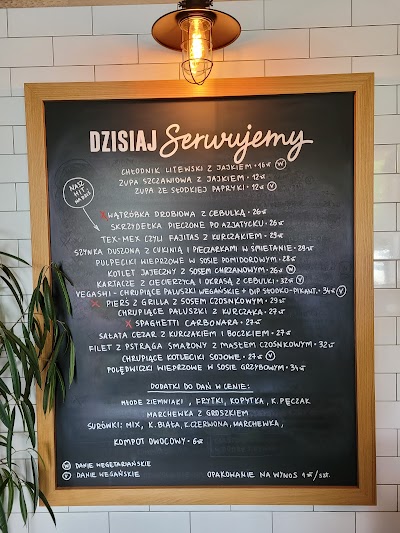 DZISIAJ Serwujemy
CHŁODNIK LITEWSKI Z JAJKIEM • 16 zł (W)
ZUPA SZCZAWIOWA Z JAJKIEM • 12 zł
ZUPA ZE SŁODKIEJ PAPRYKI • 12 zł (V)
NASZ HIT
X WĄTRÓBKA DROBIOWA Z CEBULKĄ • 26 zł
SKRZYDEŁKA PIECZONE PO AZJATYCKU • 26 zł
TEX-MEX CZYLI FAJITAS Z KURCZAKIEM • 29 zł
SZYNKA DUSZONA Z CUKINIĄ I PIECZARKAMI W ŚMIETANIE • 29 zł
PULPECIKI WIEPRZOWE W SOSIE POMIDOROWYM • 28 zł
KOTLET JAJECZNY Z SOSEM CHRZANOWYM • 26 zł (W)
KARTACZE Z CIECIERZYCĄ I OKRASĄ Z CEBULKI • 32 zł (V)
VEGASHI - CHRUPIĄCE PAŁUSZKI WEGAŃSKIE + DIP SŁODKO-PIKANT. • 34 zł (V)
X PIERŚ Z GRILLA Z SOSEM CZOSNKOWYM • 29 zł
CHRUPIĄCE PAŁUSZKI Z KURCZAKA • 27 zł
X SPAGHETTI CARBONARA • 27 zł
SAŁATA CEZAR Z KURCZAKIEM I BOCZKIEM • 27 zł
FILET Z PSTRĄGA SMAŻONY Z MASŁEM CZOSNKOWYM • 32 zł
CHRUPIĄCE KOTLECIKI SOJOWE • 27 zł (V)
POLĘDWICZKI WIEPRZOWE W SOSIE GRZYBOWYM • 34 zł
DODATKI DO DAŃ W CENIE:
MŁODE ZIEMNIAKI, FRYTKI, KOPYTKA, K. PĘCZAK
MARCHEWKA Z GROSZKIEM
SURÓWKI: MIX, K. BIAŁA, K. CZERWONA, MARCHEWKA,
KOMPOT OWOCOWY • 6 zł
(W) DANIE WEGETARIAŃSKIE
(V) DANIE WEGAŃSKIE
OPAKOWANIE NA WYNOS 1 zł/szt.